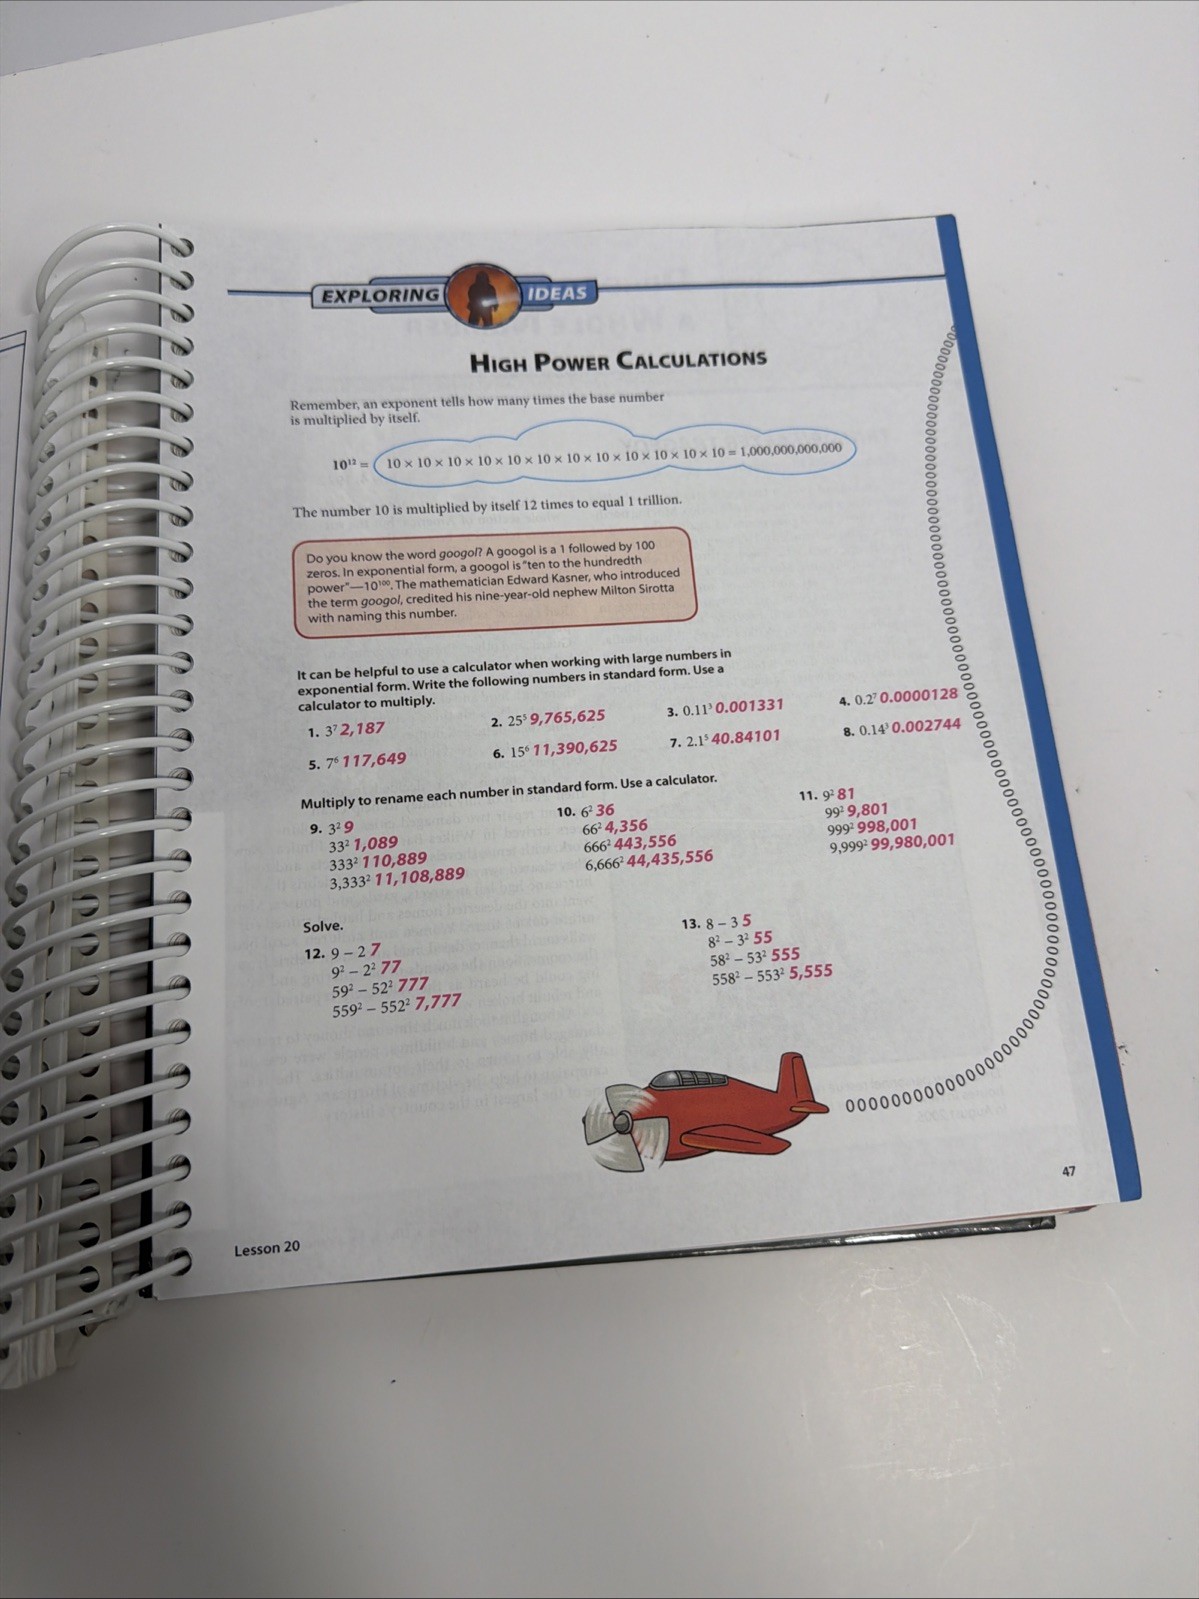 EXPLORING IDEAS
HIGH POWER CALCULATIONS
Remember, an exponent tells how many times the base number
is multiplied by itself.
10¹² = 10 × 10 × 10 × 10 × 10 × 10 × 10 × 10 × 10 × 10 × 10 × 10 = 1,000,000,000,000
The number 10 is multiplied by itself 12 times to equal 1 trillion.
Do you know the word googol? A googol is a 1 followed by 100
zeros. In exponential form, a googol is "ten to the hundredth
power"—10¹⁰⁰. The mathematician Edward Kasner, who introduced
the term googol, credited his nine-year-old nephew Milton Sirotta
with naming this number.
It can be helpful to use a calculator when working with large numbers in
exponential form. Write the following numbers in standard form. Use a
calculator to multiply.
1. 3⁷ 2,187 2. 25⁵ 9,765,625 3. 0.11³ 0.001331 4. 0.2⁷ 0.0000128
5. 7⁶ 117,649 6. 15⁶ 11,390,625 7. 2.1⁵ 40.84101 8. 0.14³ 0.002744
Multiply to rename each number in standard form. Use a calculator.
9. 3² 9
33² 1,089
333² 110,889
3,333² 11,108,889
10. 6² 36
66² 4,356
666² 443,556
6,666² 44,435,556
11. 9² 81
99² 9,801
999² 998,001
9,999² 99,980,001
Solve.
12. 9 – 2 7
9² – 2² 77
59² – 52² 777
559² – 552² 7,777
13. 8 – 3 5
8² – 3² 55
58² – 53² 555
558² – 553² 5,555
47
Lesson 20